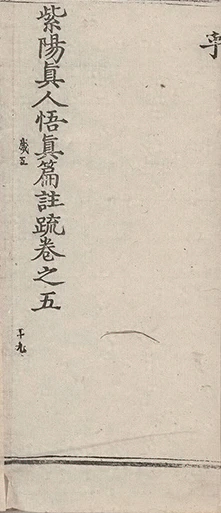 紫陽真人悟真篇註疏卷之五
歲五
十九